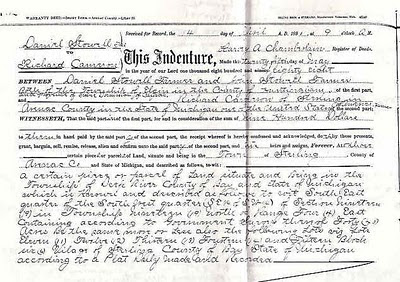 WARRANTY DEED
Daniel Stowell
To
Richard Cameron
Received for Record, the 14 day of April A.D. 188 at 9 o'clock A.M.
Harry A Chamberlain, Register of Deeds.
This Indenture, Made day of May
in the year of our Lord one thousand eight hundred and Eighty Eight
BETWEEN Daniel Stowell Farmer and Jane Stowell Farmer
of the Township of Elgin in the County of Huntingdon of the first part
and Richard Cameron of Sterling in
Arenac County in the State of Michigan of the United States of the second part,
WITNESSETH, That the said part of the first part, for and in consideration of the sum of One Hundred Dollars
to them in hand paid by the said part of the second part, the receipt whereof is hereby confessed and acknowledged, do by these presents, grant,
bargain, sell, remise, release, alien and confirm unto the said part of the second part, and his heirs and assigns, Forever, all those
certain piece or parcel of Land, situate and being in the Town of Sterling, County of
Arenac Co and State of Michigan, and described as follows, to-wit:
a certain piece or parcel of Land situate and being in the
Township of Deep River County of Bay and State of Michigan
which is and described as follows to wit South East
quarter of the South West quarter (S.E ¼ S.W ¼) of Section Nineteen
(19) in Township Nineteen (19) North of Range Four (4) East
Containing according to Government Survey Forty (40)
Acres be the same more or less also the following Lots viz Lots
Eleven (11) Twelve (12) Thirteen (13) Fourteen (14) and Fifteen Block
six (6) Village of Sterling County of Bay State of Michigan
according to a Plat duly made and recorded